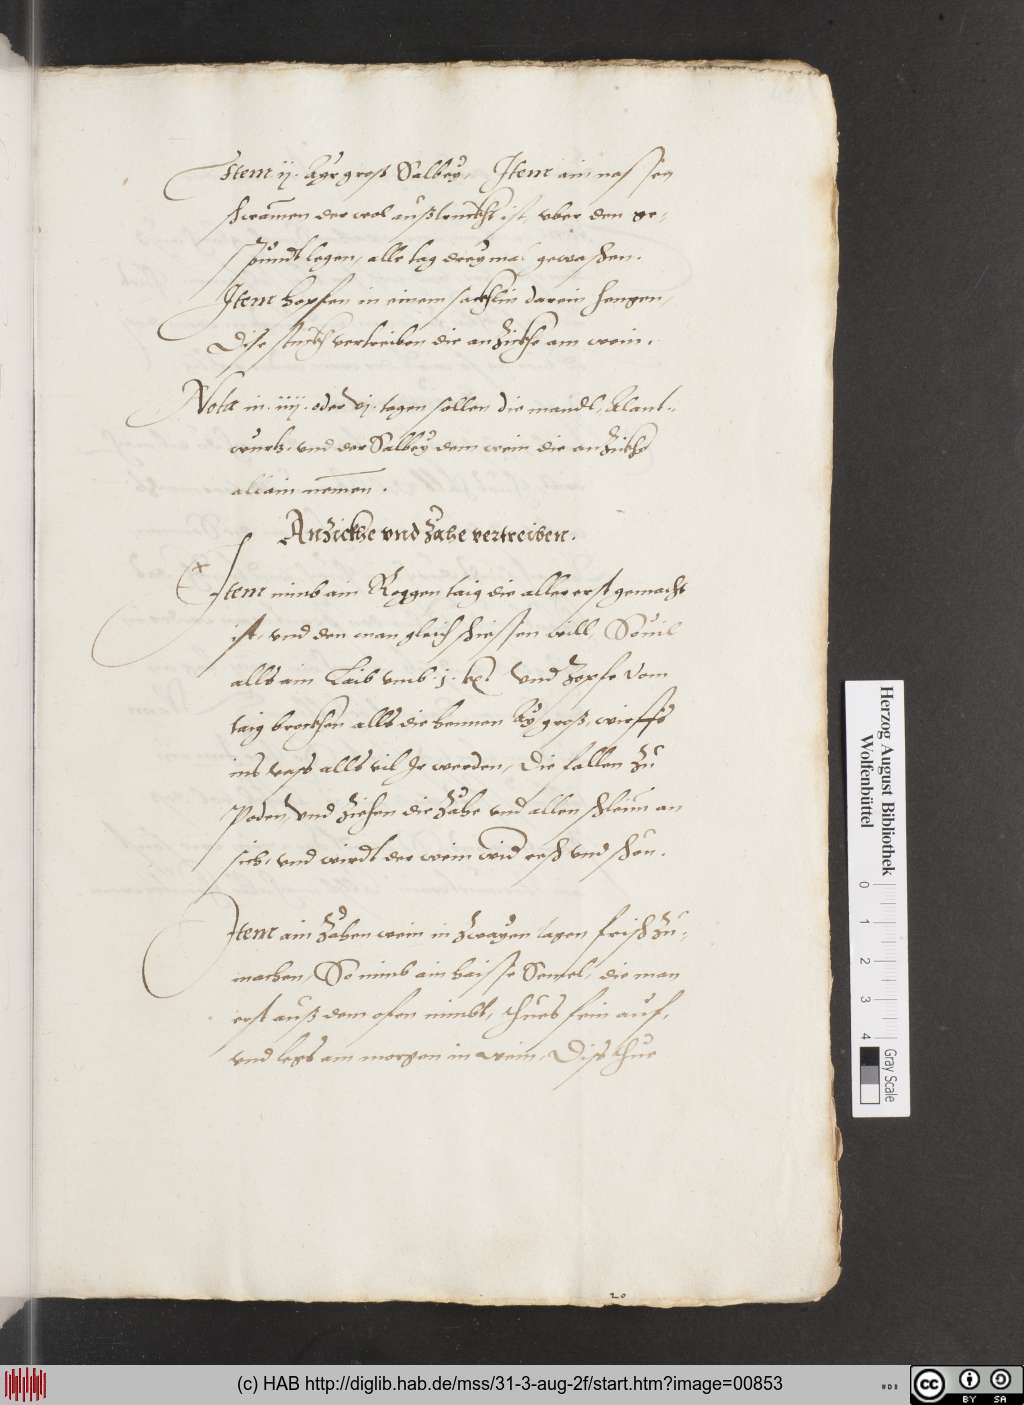 Item ij. Ayr gross Salbey, Item ain nassen
schwamen der wol außtruckht ist, vber den ge,
spundt legen, alle tag dreymal gewaschen.
Item Hopfen in einem säckhlin darein hengen,
Dise stuckh vertreiben die anzickhe am wein.
Nota in. iiij. oder vj. tagen sollen die mandl, Alant-
wurtz, vnd der Salbey dem wein die anzickhe
allain nemen.
Anzickhe vnd Zähe vertreiben.
Item nimb ain Roggen taig die aller erst gemacht
ist, vnd den man gleich schiessen will, Souil
alls ain Laib vmb .j. kr vnd Zopfe vom
taig brockhen alls die hennen Ay groß, wirffs
ins vass alls vil Ir werden, Die fallen zu
Poden, vnd ziehen die Zähe vnd allen schleim an
sich, vnd wirdt der wein wid resch vnd schön.
Item ain Zähen wein in zwayen tagen frisch zu-
machen, So nimb ain haisse Semel, die man
erst auß dem ofen nimbt, thues fein auf,
vnd legs am morgen in wein, Diss thue
20
Herzog August Bibliothek
Wolfenbüttel
0 1 2 3 4
Gray Scale
(c) HAB http://diglib.hab.de/mss/31-3-aug-2f/start.htm?image=00853
cc BY SA